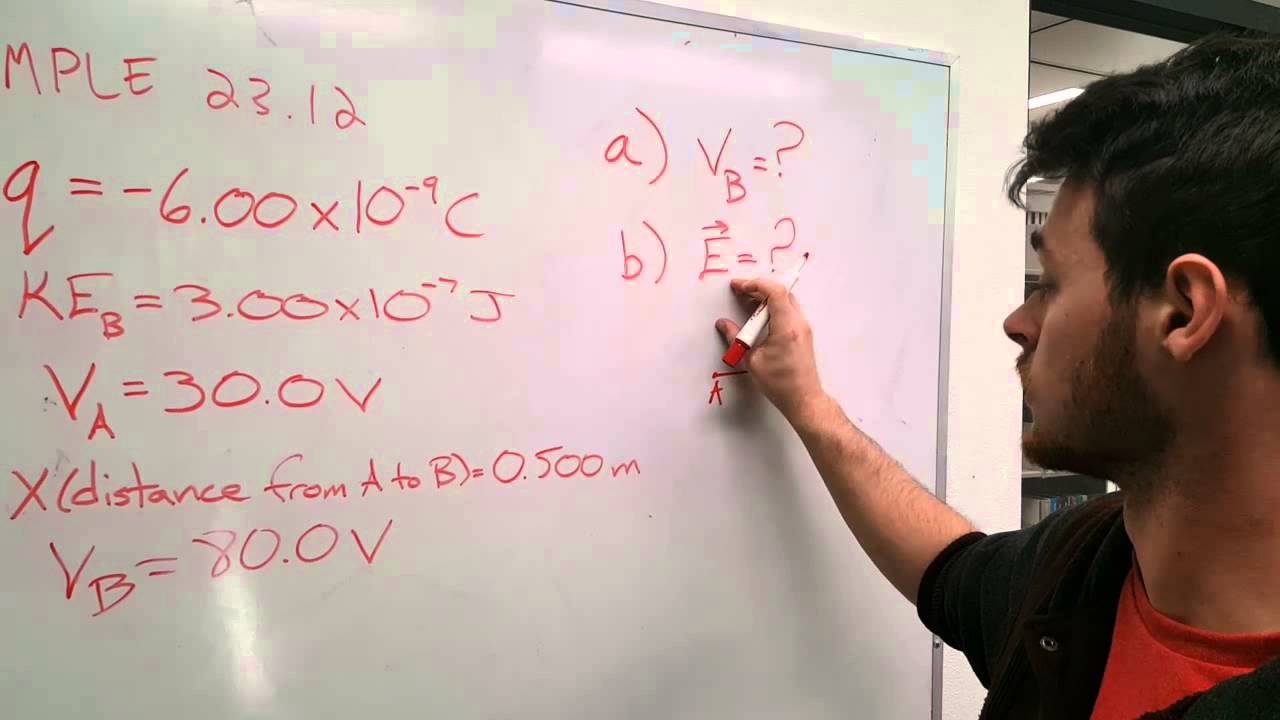 MPLE 23.12
q = -6.00x10⁻⁹C
KE_B = 3.00x10⁻⁷J
V_A = 30.0V
X(distance from A to B)=0.500m
V_B = 80.0V
a) V_B=?
b) E⃗=?
A